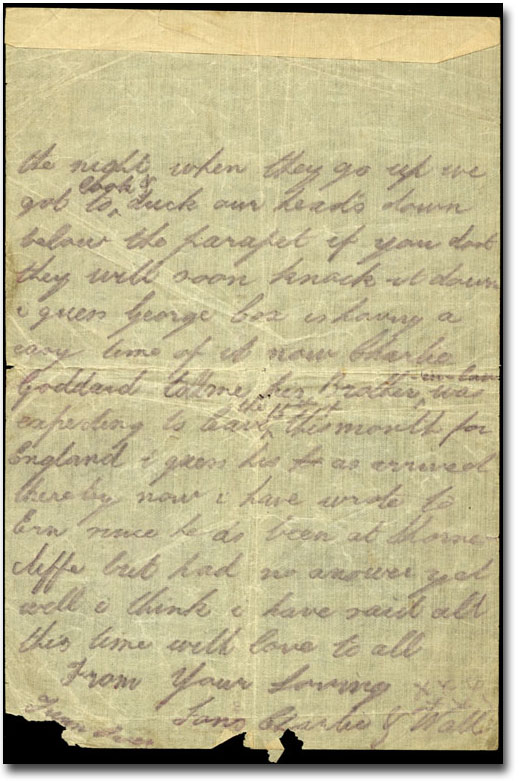 the night when they go up we
look &
got to, duck our heads down
below the parapet if you dont
they will soon knock it down
i guess George Cox is having a
easy time of it now Charlie
Goddard told me his Brother, in-law was
expecting to leave, the 15 this month for
England i guess his as arrived
there by now i have wrote to
Ern since he as been at Shorne-
cliffe but had no answer yet
well i think i have said all
this time with love to all
From Your Loving xx
Sons Charlie & Walt